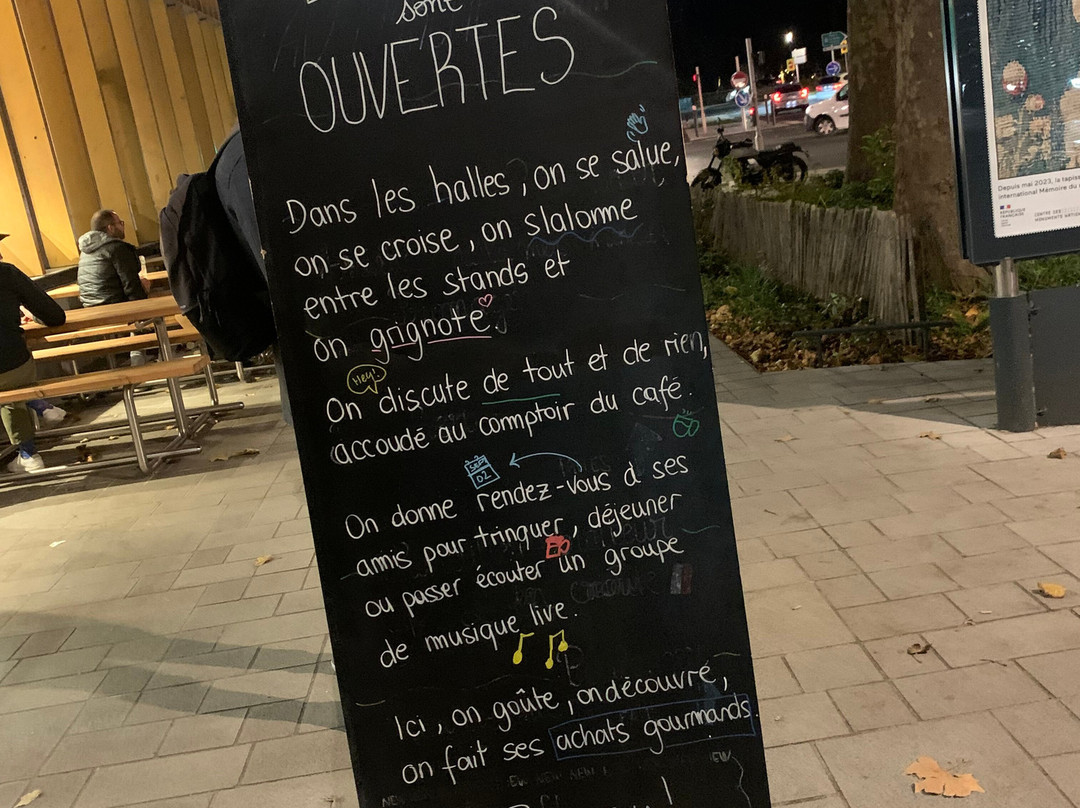 sont
OUVERTES
Dans les halles, on se salue,
on se croise, on slalome
entre les stands et
on grignote.
Hey!
On discute de tout et de rien,
accoudé au comptoir du café.
SEP
02
On donne rendez-vous à ses
amis pour trinquer, déjeuner
ou passer écouter un groupe
de musique live.
Ici, on goûte, on découvre,
on fait ses achats gourmands.
Depuis mai 2023, la
international Mémoire du
RÉPUBLIQUE
FRANÇAISE
CENTRE DES
MONUMENTS